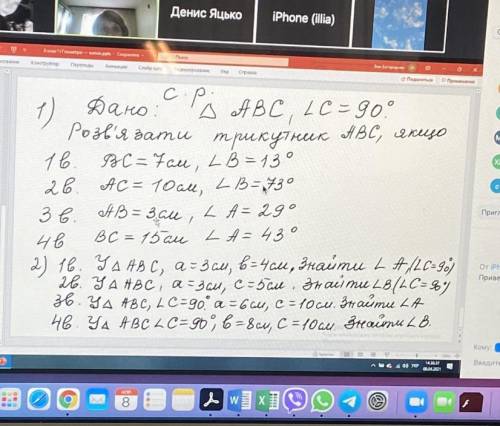 Денис Яцько
iPhone (illia)
Конструктор
Переходы
Анимации
с. р.
1) Дано: △ ABC, ∠C = 90°.
Розв'язати трикутник ABC, якщо
1в. BC = 7см, ∠B = 13°
2в. AC = 10см, ∠B = 73°
3в. AB = 3см, ∠A = 29°
4в BC = 15см ∠A = 43°
2) 1в. У△ ABC, a = 3см, b = 4см. Знайти ∠A (∠C = 90°)
2в. У△ ABC, a = 3см, c = 5см. Знайти ∠B (∠C = 90°)
3в. У△ ABC, ∠C = 90°. a = 6см, c = 10см. Знайти ∠A.
4в. У△ ABC ∠C = 90°, b = 8см, c = 10см. Знайти ∠B.
Кому: